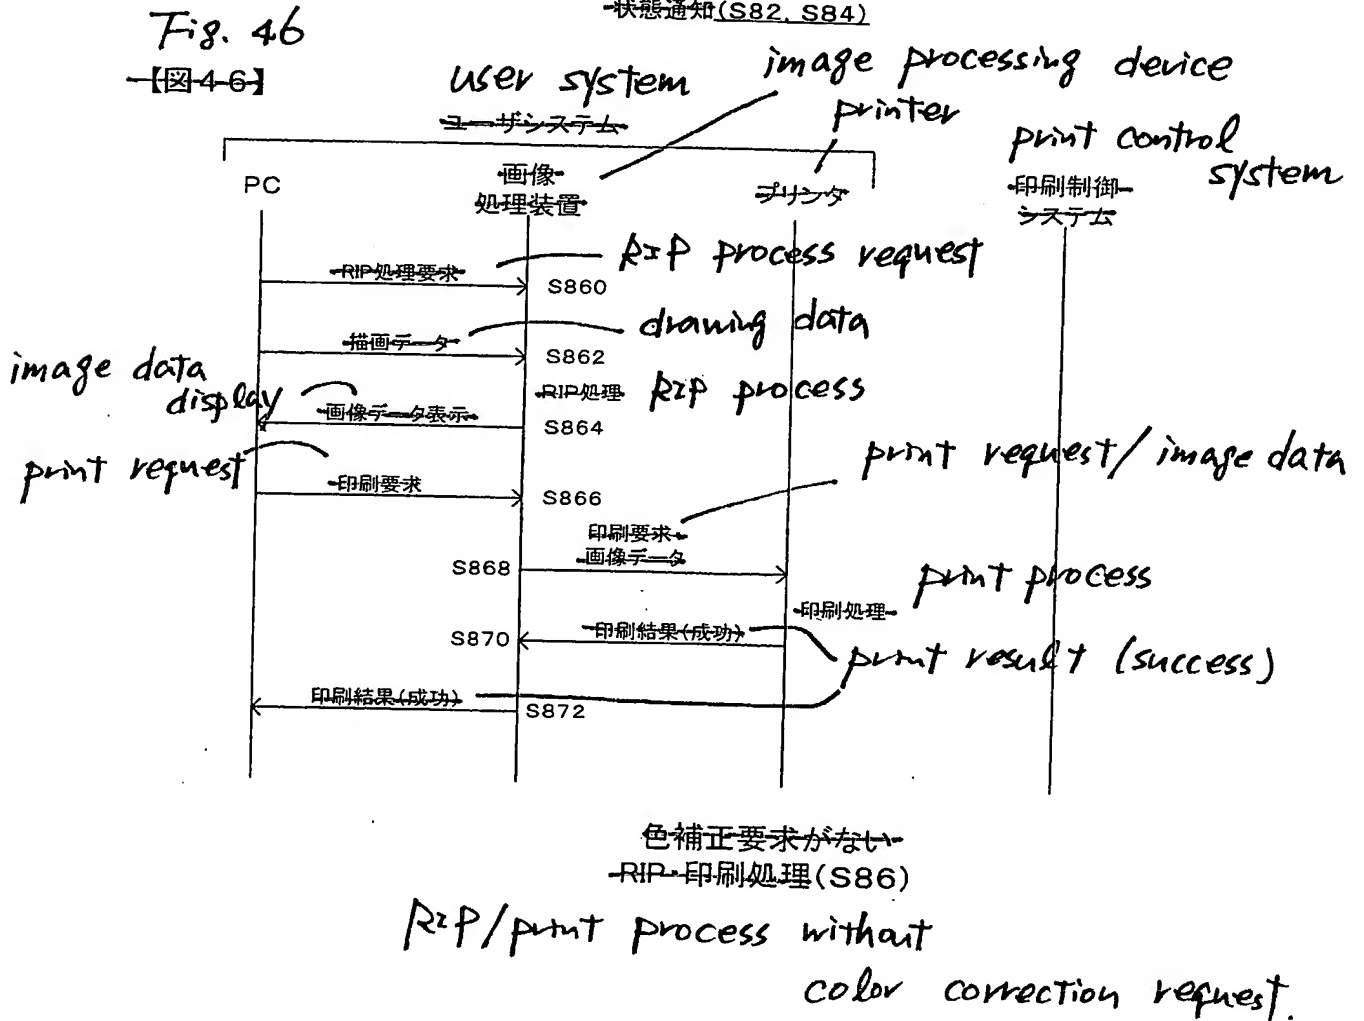 状態通知(S82, S84)
Fig. 46
【図46】
user system
image processing device
ユーザシステム
printer
print control
system
PC
画像
処理装置
プリンタ
印刷制御
システム
RIP処理要求
RIP process request
S860
描画データ
drawing data
S862
image data
display
画像データ表示
RIP処理
RIP process
S864
print request
印刷要求
S866
print request/image data
印刷要求
画像データ
S868
print process
印刷処理
S870
印刷結果(成功)
print result (success)
印刷結果(成功)
S872
色補正要求がない
RIP・印刷処理(S86)
RIP/print process without
color correction request.